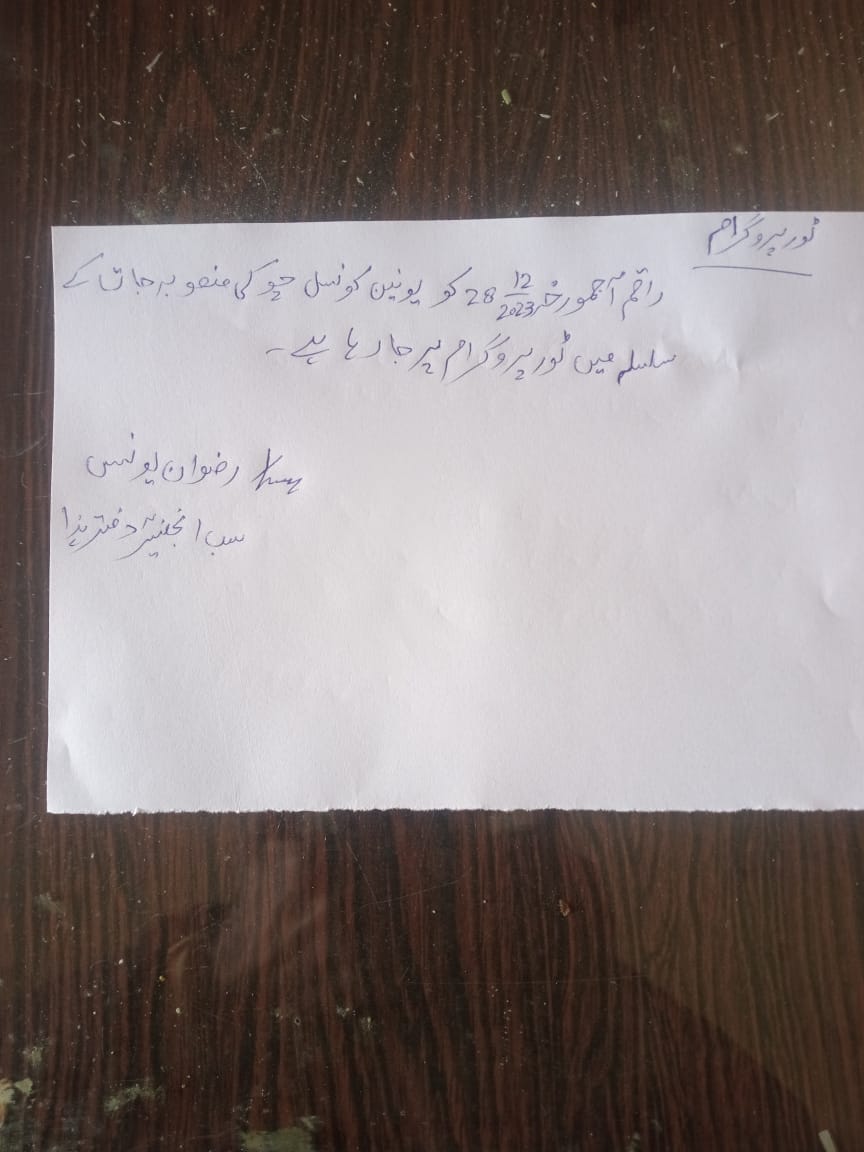 ٹور پروگرام
راقم آج مورخہ 28 12/2023 کو یونین کونسل چپو کی منصوبہ جات کے
سلسلہ میں ٹور پروگرام پر جا رہا ہے۔
رضوان یونس
سب انجنیئر دفتر ہذا